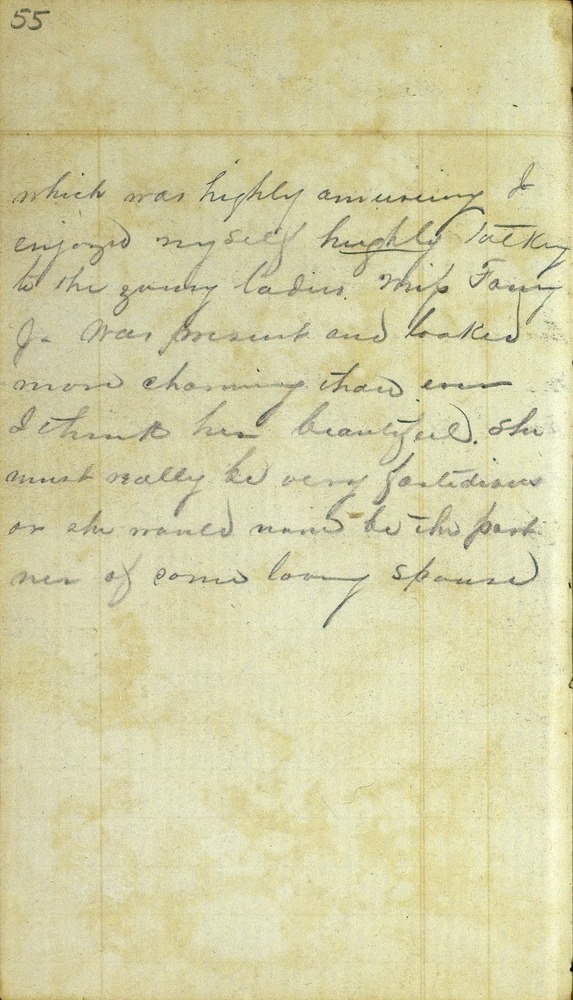 55
which was highly amuseing I
enjoyed myself hughly talking
to the young ladies. Miss Fanny
J. was present and looked
more charming than ever
I think her beautiful. She
must really be very fastidious
or she would now be the part
ner of some loving spouse